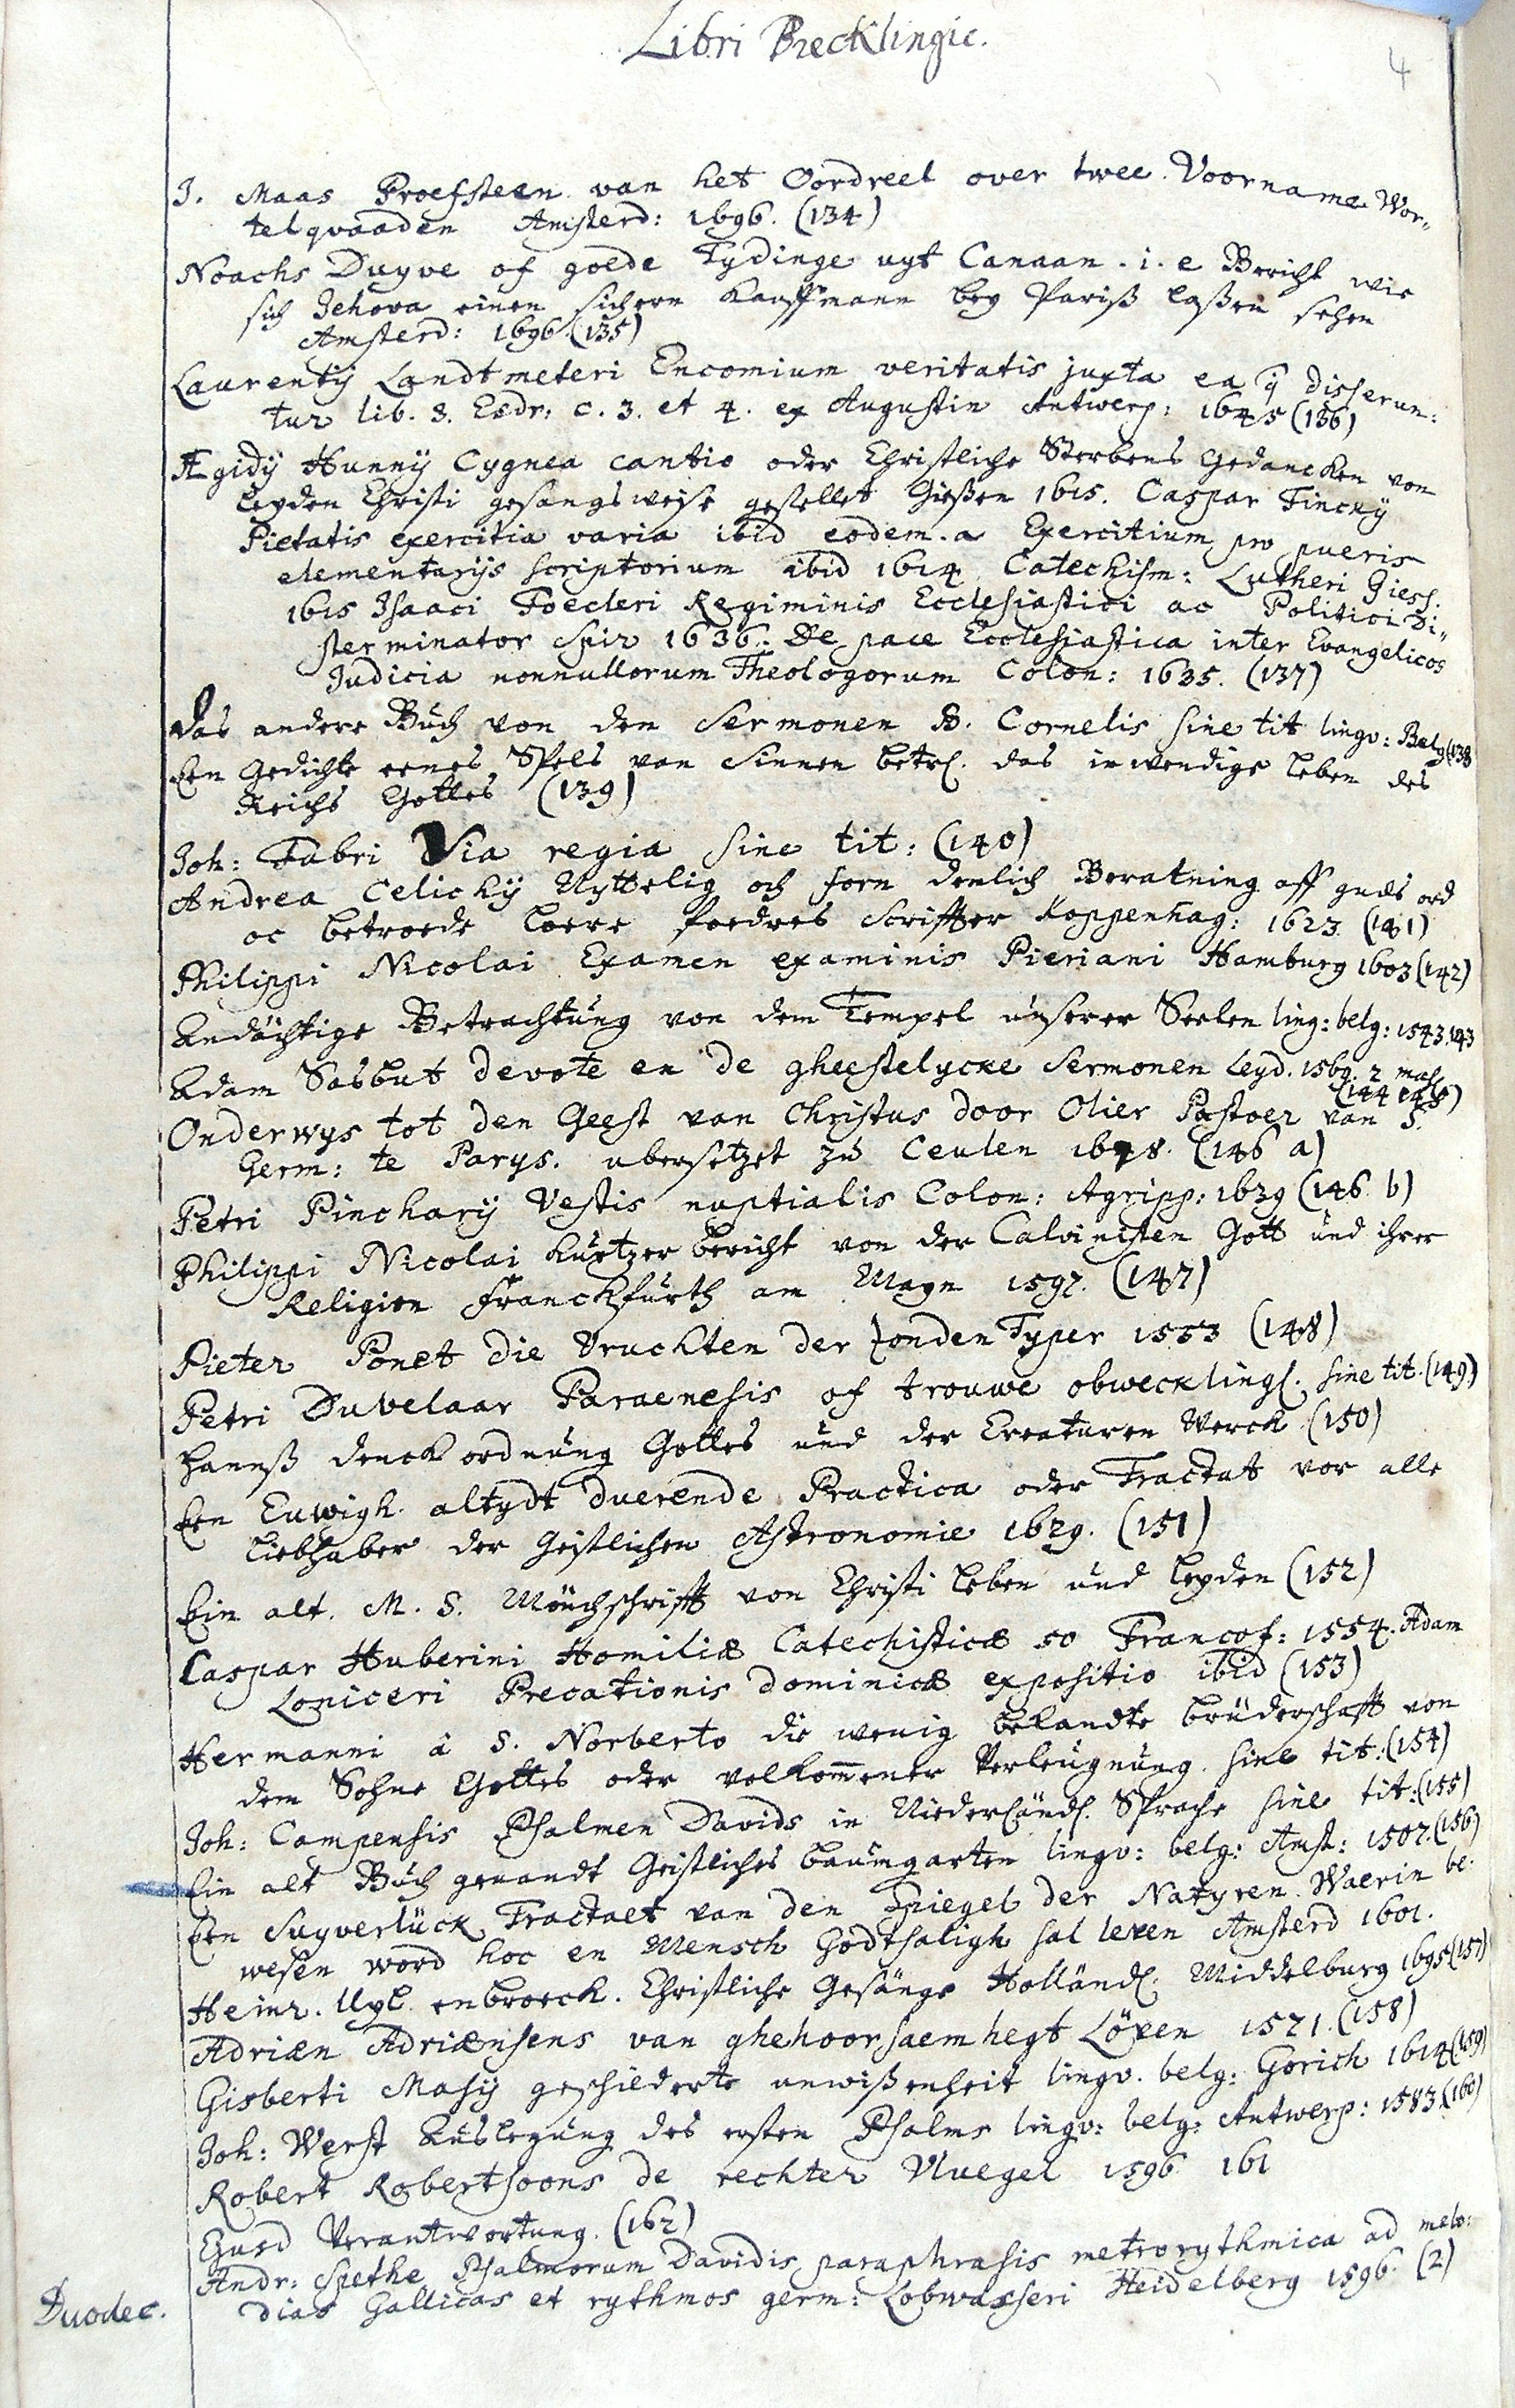 Libri Brecklingic.
4
J. Maas Proefsteen van het Oordreel over twee Voorname Wor„
telqvaaden Amsterd: 1696. (134)
Noachs Duyve of goede Tydinge uyt Canaan. i. e Bericht wie
sich Jehova einen sichern Kauffmann bey Pariß laßen sehen
Amsterd: 1696. (135)
Laurentij Landtmeteri Encomium veritatis juxta ea q̄ disserun:
tur lib. 3. Esdr: c. 3. et 4. ex Augustin Antwerp: 1645 (136)
Ægidij Hunnij Cygnea cantio oder Christliche Sterbens Gedancken vom
leyden Christi gesangsweise gestellet Gießen 1615. Caspar Finckij
Pietatis exercitia varia ibid eodem. a Exercitium pro pueris
elementarijs scriptorium ibid 1614 Catechism: Lutheri Giess.
1615 Isaaci Foecleri Regiminis Ecclesiastici ac Politici Di„
sterminator Spir 1636. De pace Ecclesiastica inter Evangelicos
Judicia nonnullorum Theologorum Colon: 1635. (137)
Das andere Buch von den Sermonen B. Cornelis sine tit lingv: Belg (138
Een Gedichte eenes Spels van Sinnen betr. das inwendige leben des
Reichs Gottes (139)
Joh: Fabri Via regia sine tit: (140)
Andrea Celichij Nyttelig och forn demlich Beratning aff guds ord
oc betroede loere foedres Scriffter Koppenhag: 1623. (141)
Philippi Nicolai Examen examinis Pieriani Hamburg 1603 (142)
Andächtige Betrachtung von dem Tempel unserer Seelen ling: belg: 1543. 143
Adam Sasbut devote en de gheestelycke Sermonen Leyd. 1569. 2 mahl
(144 145)
Onderwys tot den Geest van Christus door Olier Pastoer van S.
Germ: te Parys. ubersetzet zu Ceulen 1698. (146 a)
Petri Pincharij Vestis nuptialis Colon: Agripp: 1639 (146. b)
Philippi Nicolai Kurtzer bericht von der Calvinisten Gott und ihrer
Religion Franckfurth am Mayn 1597. (147)
Pieter Ponet die Vruchten der zonden Typer 1553 (148)
Petri Duvelaar Paraenesis of trouwe obwecklingl. sine tit. (149)
Hannß Denck ordnung Gottes und der Creaturen Werck (150)
Een Euwigh. altydt duerende Practica oder Tractat vor alle
liebhaber der Geistlichen Astronomie 1629. (151)
Ein alt. M. S. Münchschrifft von Christi leben und leyden (152)
Caspar Huberini Homiliæ Catechisticæ 50 Francof: 1554. Adam
Loniceri Precationis dominicæ expositio ibid (153)
Hermanni à S. Norberto die wenig bekandte brüderschafft von
dem Sohne Gottes oder volkom̄ener Verleugnung. sine tit: (154)
Joh: Campensis Psalmen Davids in Niederländ. Sprache sine tit: (155)
Ein alt Buch genandt Geistliches baumgarten lingv: belg: Amst: 1507. (156)
Een Suyverlück Tractaet van den Spiegel der Natyren. Waerin be.
wesen word hoe en Mensch Godtsaligh sal leven Amsterd 1601.
Heinr. Uyl. enbroeck. Christliche Gesänge Holländ. Middelburg 1695 (157)
Adriæn Adriænsens van ghehoorsaemheyt Löven 1571. (158)
Gisberti Masij geschilderte unwißenheit lingv. belg: Gorich 1614 (159)
Joh: Werst Auslegung des ersten Psalms lingv: belg: Antwerp: 1583 (160)
Robert Robertsoons de rechter Vluegel 1596 161
Ejusd Verantwortung. (162)
Andr: Spethe Psalmorum Davidis paraphrasis metrorythmica ad melo:
Duodec. dias Gallicas et rythmos germ: Lobwasseri Heidelberg 1596. (2)